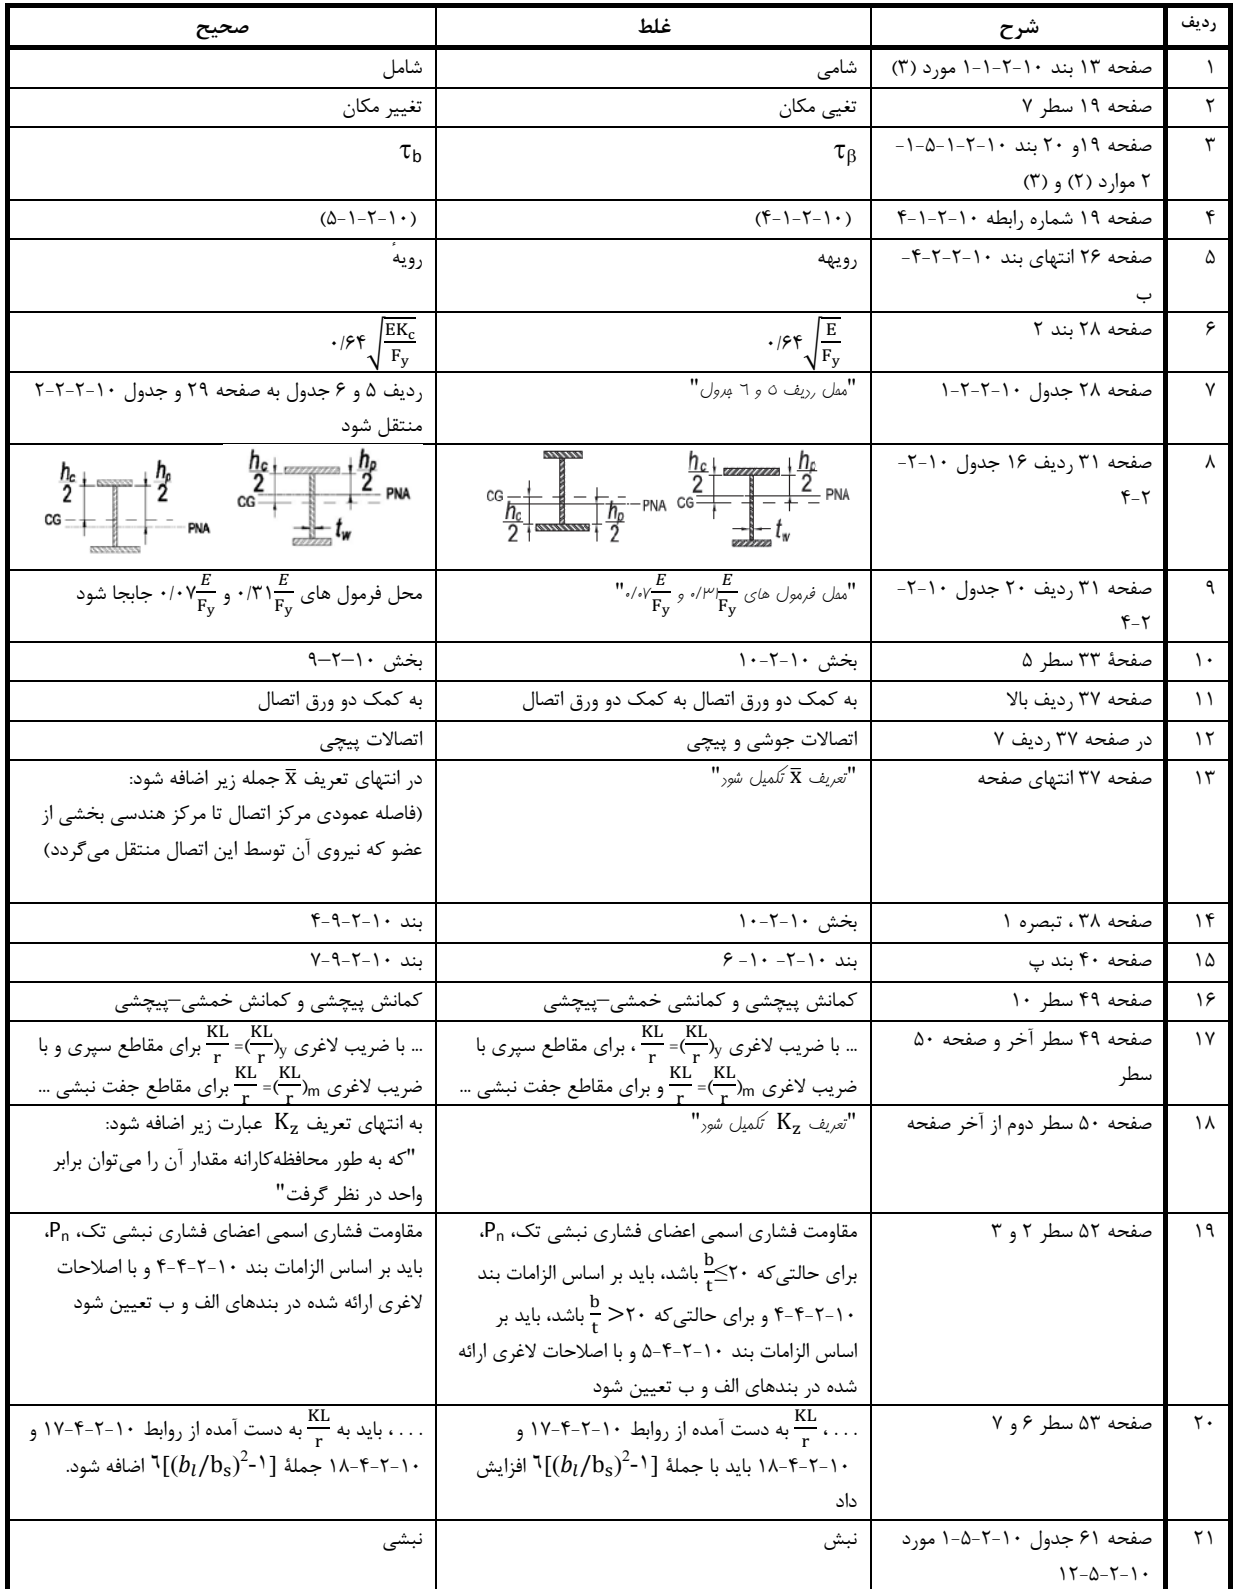 ردیف شرح غلط صحیح
۱ صفحه ۱۳ بند ۱۰-۲-۱-۱ مورد (۳) شامی شامل
۲ صفحه ۱۹ سطر ۷ تغیی مکان تغییر مکان
۳ صفحه ۱۹و ۲۰ بند ۱۰-۲-۱-۵-۱- τβ τb
۲ موارد (۲) و (۳)
۴ صفحه ۱۹ شماره رابطه ۱۰-۲-۱-۴ (۱۰-۲-۱-۴) (۱۰-۲-۱-۵)
۵ صفحه ۲۶ انتهای بند ۱۰-۲-۲-۴- رویهه رویهٔ
ب
۶ صفحه ۲۸ بند ۲ ۰/۶۴√(E/Fy) ۰/۶۴√(EKc/Fy)
۷ صفحه ۲۸ جدول ۱۰-۲-۲-۱ "محل ردیف ۵ و ۶ جدول" ردیف ۵ و ۶ جدول به صفحه ۲۹ و جدول ۱۰-۲-۲-۲
منتقل شود
۸ صفحه ۳۱ ردیف ۱۶ جدول ۱۰-۲-
۲-۴
CG hc/2 hp/2 PNA CG hc/2 hp/2 PNA tw
hc/2 CG hp/2 PNA hc/2 CG hp/2 PNA tw
۹ صفحه ۳۱ ردیف ۲۰ جدول ۱۰-۲- "محل فرمول های ۰/۳۱E/Fy و ۰/۰۷E/Fy" محل فرمول های ۰/۳۱E/Fy و ۰/۰۷E/Fy جابجا شود
۲-۴
۱۰ صفحهٔ ۳۳ سطر ۵ بخش ۱۰-۲-۱۰ بخش ۱۰–۲–۹
۱۱ صفحه ۳۷ ردیف بالا به کمک دو ورق اتصال به کمک دو ورق اتصال به کمک دو ورق اتصال
۱۲ در صفحه ۳۷ ردیف ۷ اتصالات جوشی و پیچی اتصالات پیچی
۱۳ صفحه ۳۷ انتهای صفحه "تعریف x̅ تکمیل شود" در انتهای تعریف x̅ جمله زیر اضافه شود:
(فاصله عمودی مرکز اتصال تا مرکز هندسی بخشی از
عضو که نیروی آن توسط این اتصال منتقل می‌گردد)
۱۴ صفحه ۳۸ ، تبصره ۱ بخش ۱۰-۲-۱۰ بند ۱۰-۲-۹-۴
۱۵ صفحه ۴۰ بند پ بند ۱۰-۲- ۱۰- ۶ بند ۱۰-۲-۹-۷
۱۶ صفحه ۴۹ سطر ۱۰ کمانش پیچشی و کمانشی خمشی–پیچشی کمانش پیچشی و کمانش خمشی–پیچشی
۱۷ صفحه ۴۹ سطر آخر و صفحه ۵۰ ... با ضریب لاغری KL/r=(KL/r)y ، برای مقاطع سپری با ... با ضریب لاغری KL/r=(KL/r)y برای مقاطع سپری و با
سطر ضریب لاغری KL/r=(KL/r)m و برای مقاطع جفت نبشی ... ضریب لاغری KL/r=(KL/r)m برای مقاطع جفت نبشی ...
۱۸ صفحه ۵۰ سطر دوم از آخر صفحه "تعریف Kz تکمیل شود" به انتهای تعریف Kz عبارت زیر اضافه شود:
"که به طور محافظه‌کارانه مقدار آن را می‌توان برابر
واحد در نظر گرفت"
۱۹ صفحه ۵۲ سطر ۲ و ۳ مقاومت فشاری اسمی اعضای فشاری نبشی تک، Pn، مقاومت فشاری اسمی اعضای فشاری نبشی تک، Pn،
برای حالتی‌که b/t≤۲۰ باشد، باید بر اساس الزامات بند باید بر اساس الزامات بند ۱۰-۲-۴-۴ و با اصلاحات
۱۰-۲-۴-۴ و برای حالتی‌که b/t >۲۰ باشد، باید بر لاغری ارائه شده در بندهای الف و ب تعیین شود
اساس الزامات بند ۱۰-۲-۴-۵ و با اصلاحات لاغری ارائه
شده در بندهای الف و ب تعیین شود
۲۰ صفحه ۵۳ سطر ۶ و ۷ . . . ، KL/r به دست آمده از روابط ۱۰-۲-۴-۱۷ و . . . ، باید به KL/r به دست آمده از روابط ۱۰-۲-۴-۱۷ و
۱۰-۲-۴-۱۸ باید با جملهٔ ۶[(bl/bs)²-۱] افزایش ۱۰-۲-۴-۱۸ جملهٔ ۶[(bl/bs)²-۱] اضافه شود.
داد
۲۱ صفحه ۶۱ جدول ۱۰-۲-۵-۱ مورد نبش نبشی
۱۰-۲-۵-۱۲